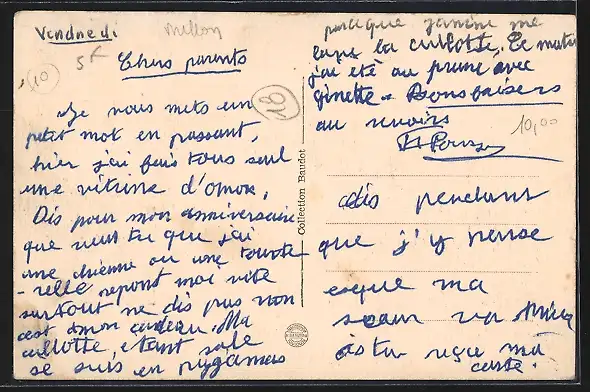 Vendredi
5f
10
Chers parents
Je vous mets un
petit mot en passant,
hier j'ai fais tous seul
une vitrine d'omon,
Dis pour mon anniversaire
que veut tu que j'ai
une chienne ou une tourte
-relle repont moi vite
surtout ne dis pas non
cest dmon cadeau. Ma
cullotte, etant sale
se suis en pygamas
18
Collection Baudot
parceque janine me
lave la cullotte. Ce matin
j'ai été au prune avec
ginette - Bons baisers
au revoirs
10,00
dis pendant
que j'y pense
esque ma
soeur va mieu
as tu reçu ma
carte.